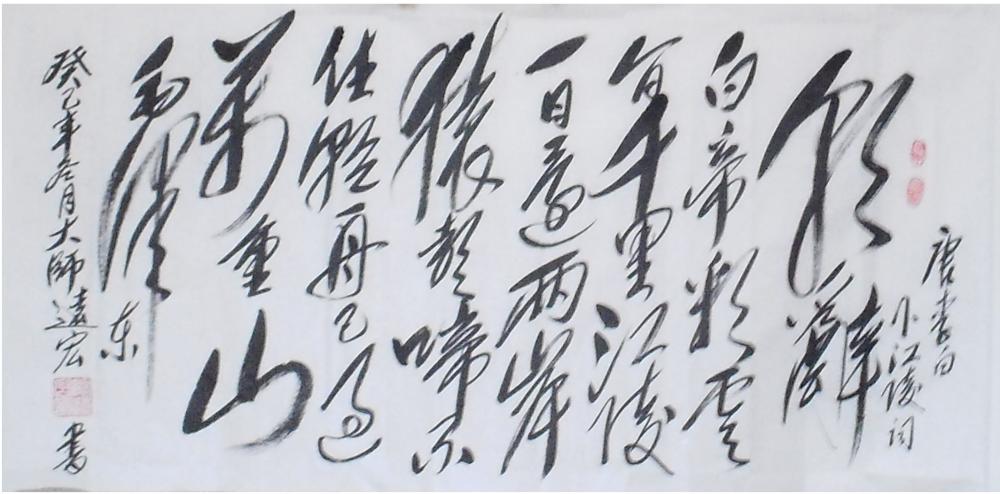 唐李白
下江陵词
朝辭
白帝彩雲
间千里江陵
一日還兩岸
猿聲啼不
住輕舟已過
萬重山
毛澤东
癸巳年冬月大師遠宏書